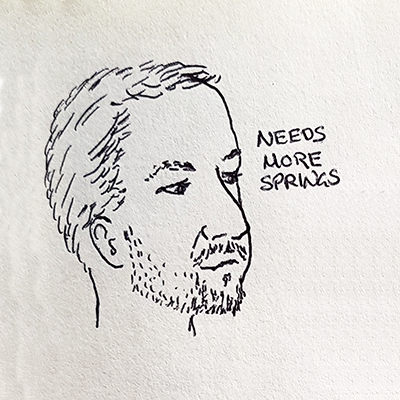 NEEDS
MORE
SPRINGS